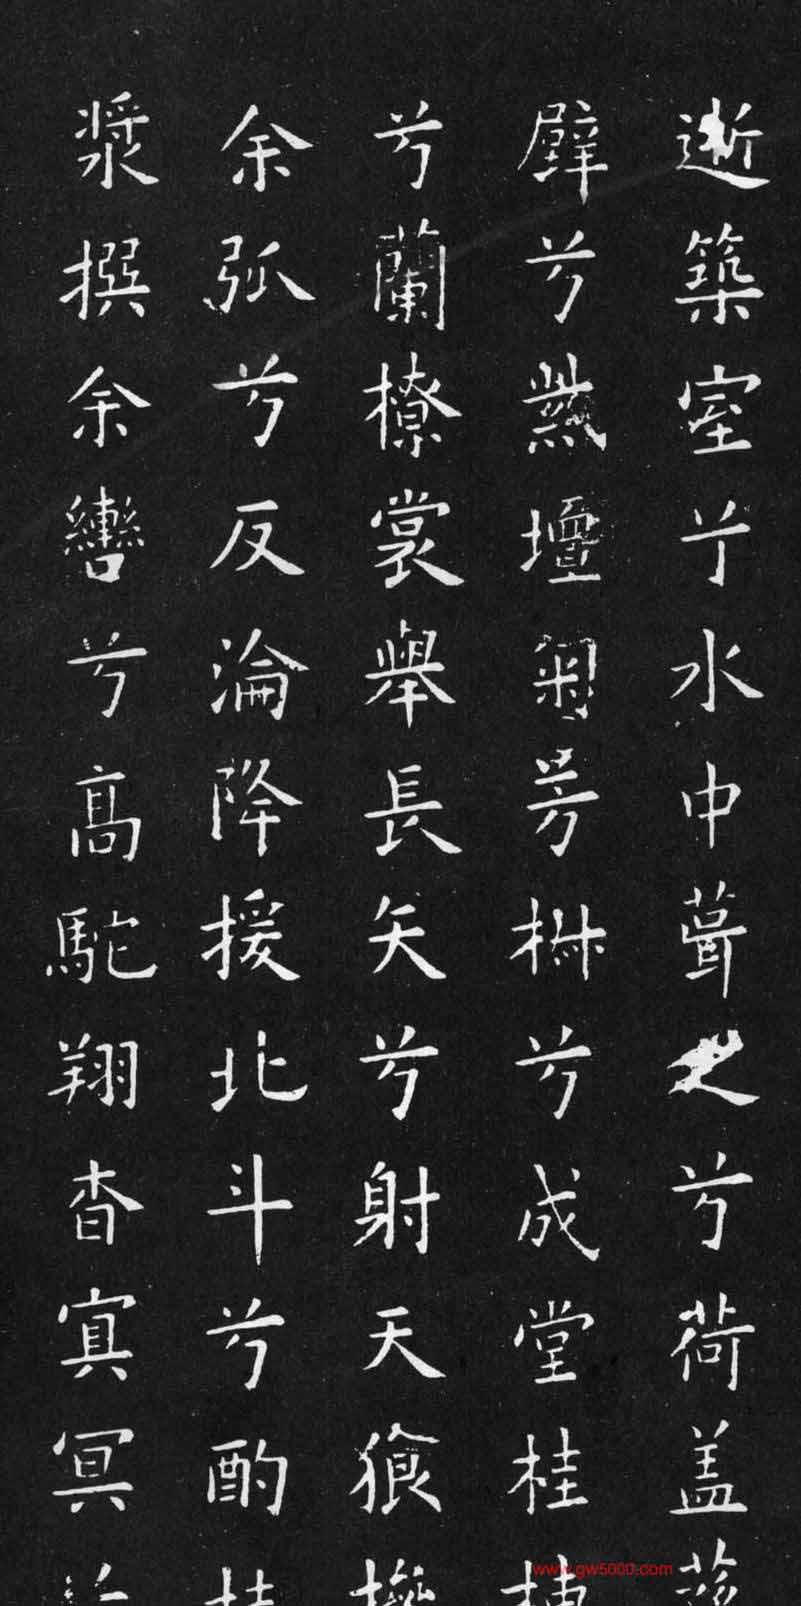 逝築室兮水中葺之兮荷盖
壁兮紫壇匊芳椒兮成堂桂
兮蘭橑裳舉長矢兮射天狼
余弧兮反淪降援北斗兮酌
漿撰余轡兮高駝翔杳冥冥
www.gw5000.com